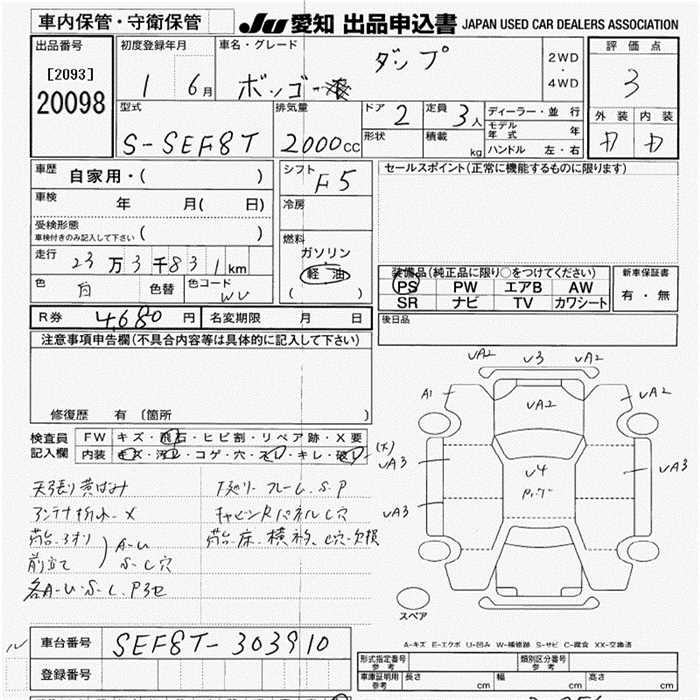 車内保管・守衛保管 JU 愛知 出品申込書 JAPAN USED CAR DEALERS ASSOCIATION
出品番号 初度登録年月 車名・グレード 評価点
[2093] 1 6月 ダンプ 2WD・4WD 3
20098 ボンゴ
外装 内装
型式 排気量 ドア 2 定員 3人 ディーラー・並行
モデル年式 年
S-SEF8T 2000cc 形状 積載 kg ハンドル 左・右
車歴 自家用・( ) シフト F5 セールスポイント(正常に機能するものに限ります)
車検 年 月( 日) 冷房
受検形態
車検付きのみ記入して下さい ( ) 燃料
走行 23万3千831km ガソリン
軽油
( )
装備品(純正品に限り○をつけてください) 新車保証書
色 白 色替 色コード WV PS PW エアB AW 有・無
SR ナビ TV カワシート
R券 4,680円 名変期限 月 日 後日品
注意事項申告欄(不具合内容等は具体的に記入して下さい)
UA2 U3 UA2
A1 UA2 UA2
修復歴 有 (箇所 )
検査員記入欄 FW キズ・飛石・ヒビ割・リペア跡・X要
内装 キズ・汚レ・コゲ・穴・スレ・キレ・破レ (大)
UA3 U4 UA3
UA3
天張り黄ばみ 下廻り フレームS.P
アンテナ折れX キャビンRパネルC穴
荷台・3方 荷台・床、横
前立て A-U
S-C穴
各A-U-S-C、P
スペア
A-キズ E-エクボ U-凹み W-補修跡 S-サビ C-腐食 XX-交換済
車台番号 SEF8T-303910
登録番号
形式指定番号 参考 類別区分番号 参考
車庫証明用 参考 長さ cm 幅 cm 高さ cm